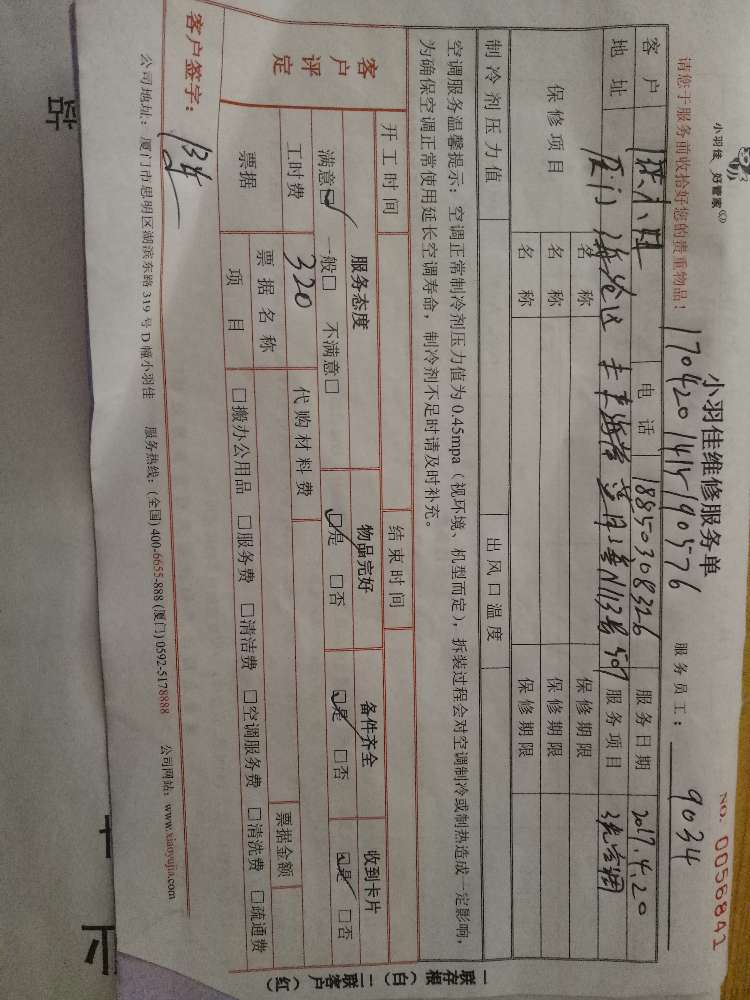 小羽佳 好管家
小羽佳维修服务单
NO. 0056841
170420141490576
请您于服务前收拾好您的贵重物品！
服务员工： 9034
客户 电话 18850308326 服务日期 2017.4.20
地址 厦门海沧区 服务项目 洗空调
保修项目 名称 保修期限
名称 保修期限
名称 保修期限
制冷剂压力值 出风口温度
空调服务温馨提示：空调正常制冷剂压力值为0.45mpa（视环境、机型而定），拆装过程会对空调制冷或制热造成一定影响，
为确保空调正常使用延长空调寿命，制冷剂不足时请及时补充。
开工时间 结束时间
客户评定
服务态度 物品完好 备件齐全 收到卡片
满意☑ 一般□ 不满意□ ☑是 □否 ☑是 □否 ☑是 □否
工时费 320 代购材料费 票据金额
票据 票据名称
项目 □搬办公用品 □服务费 □清洁费 □空调服务费 □清洗费 □疏通费
客户签字：
公司地址：厦门市思明区湖滨东路319号D幢小羽佳 服务热线：(全国)400-6655-888 (厦门)0592-5178888 公司网站：www.xiaoyujia.com
一联存根（白）二联客户（红）